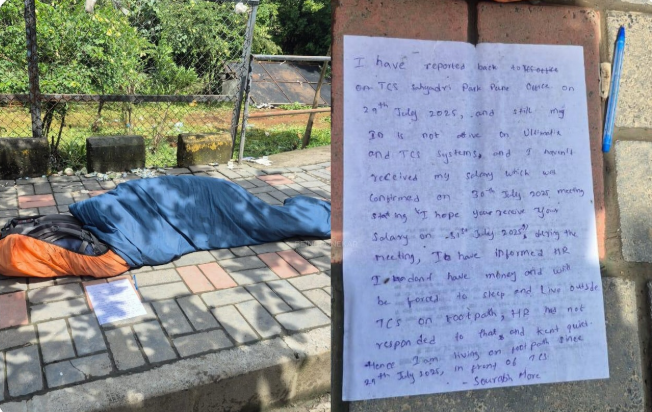 I have reported back to TCS office
on TCS Sahyadri Park Pune Office on
29th July 2025, and still my
ID is not active on Ultimatix
and TCS systems, and I haven't
received my salary which was
confirmed on 30th July 2025 meeting
stating "I hope your receive your
Salary on 31st July 2025", during the
meeting, I have informed HR
I dond have money and will
be forced to sleep and live outside
TCS on footpath, HR has not
responded to that, and kept quiet.
Hence I am living on footpath since
29th July 2025, in front of TCS
- Sourabh More